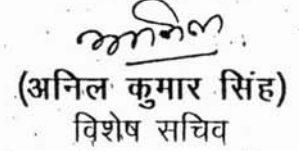 अनिल
(अनिल कुमार सिंह)
विशेष सचिव